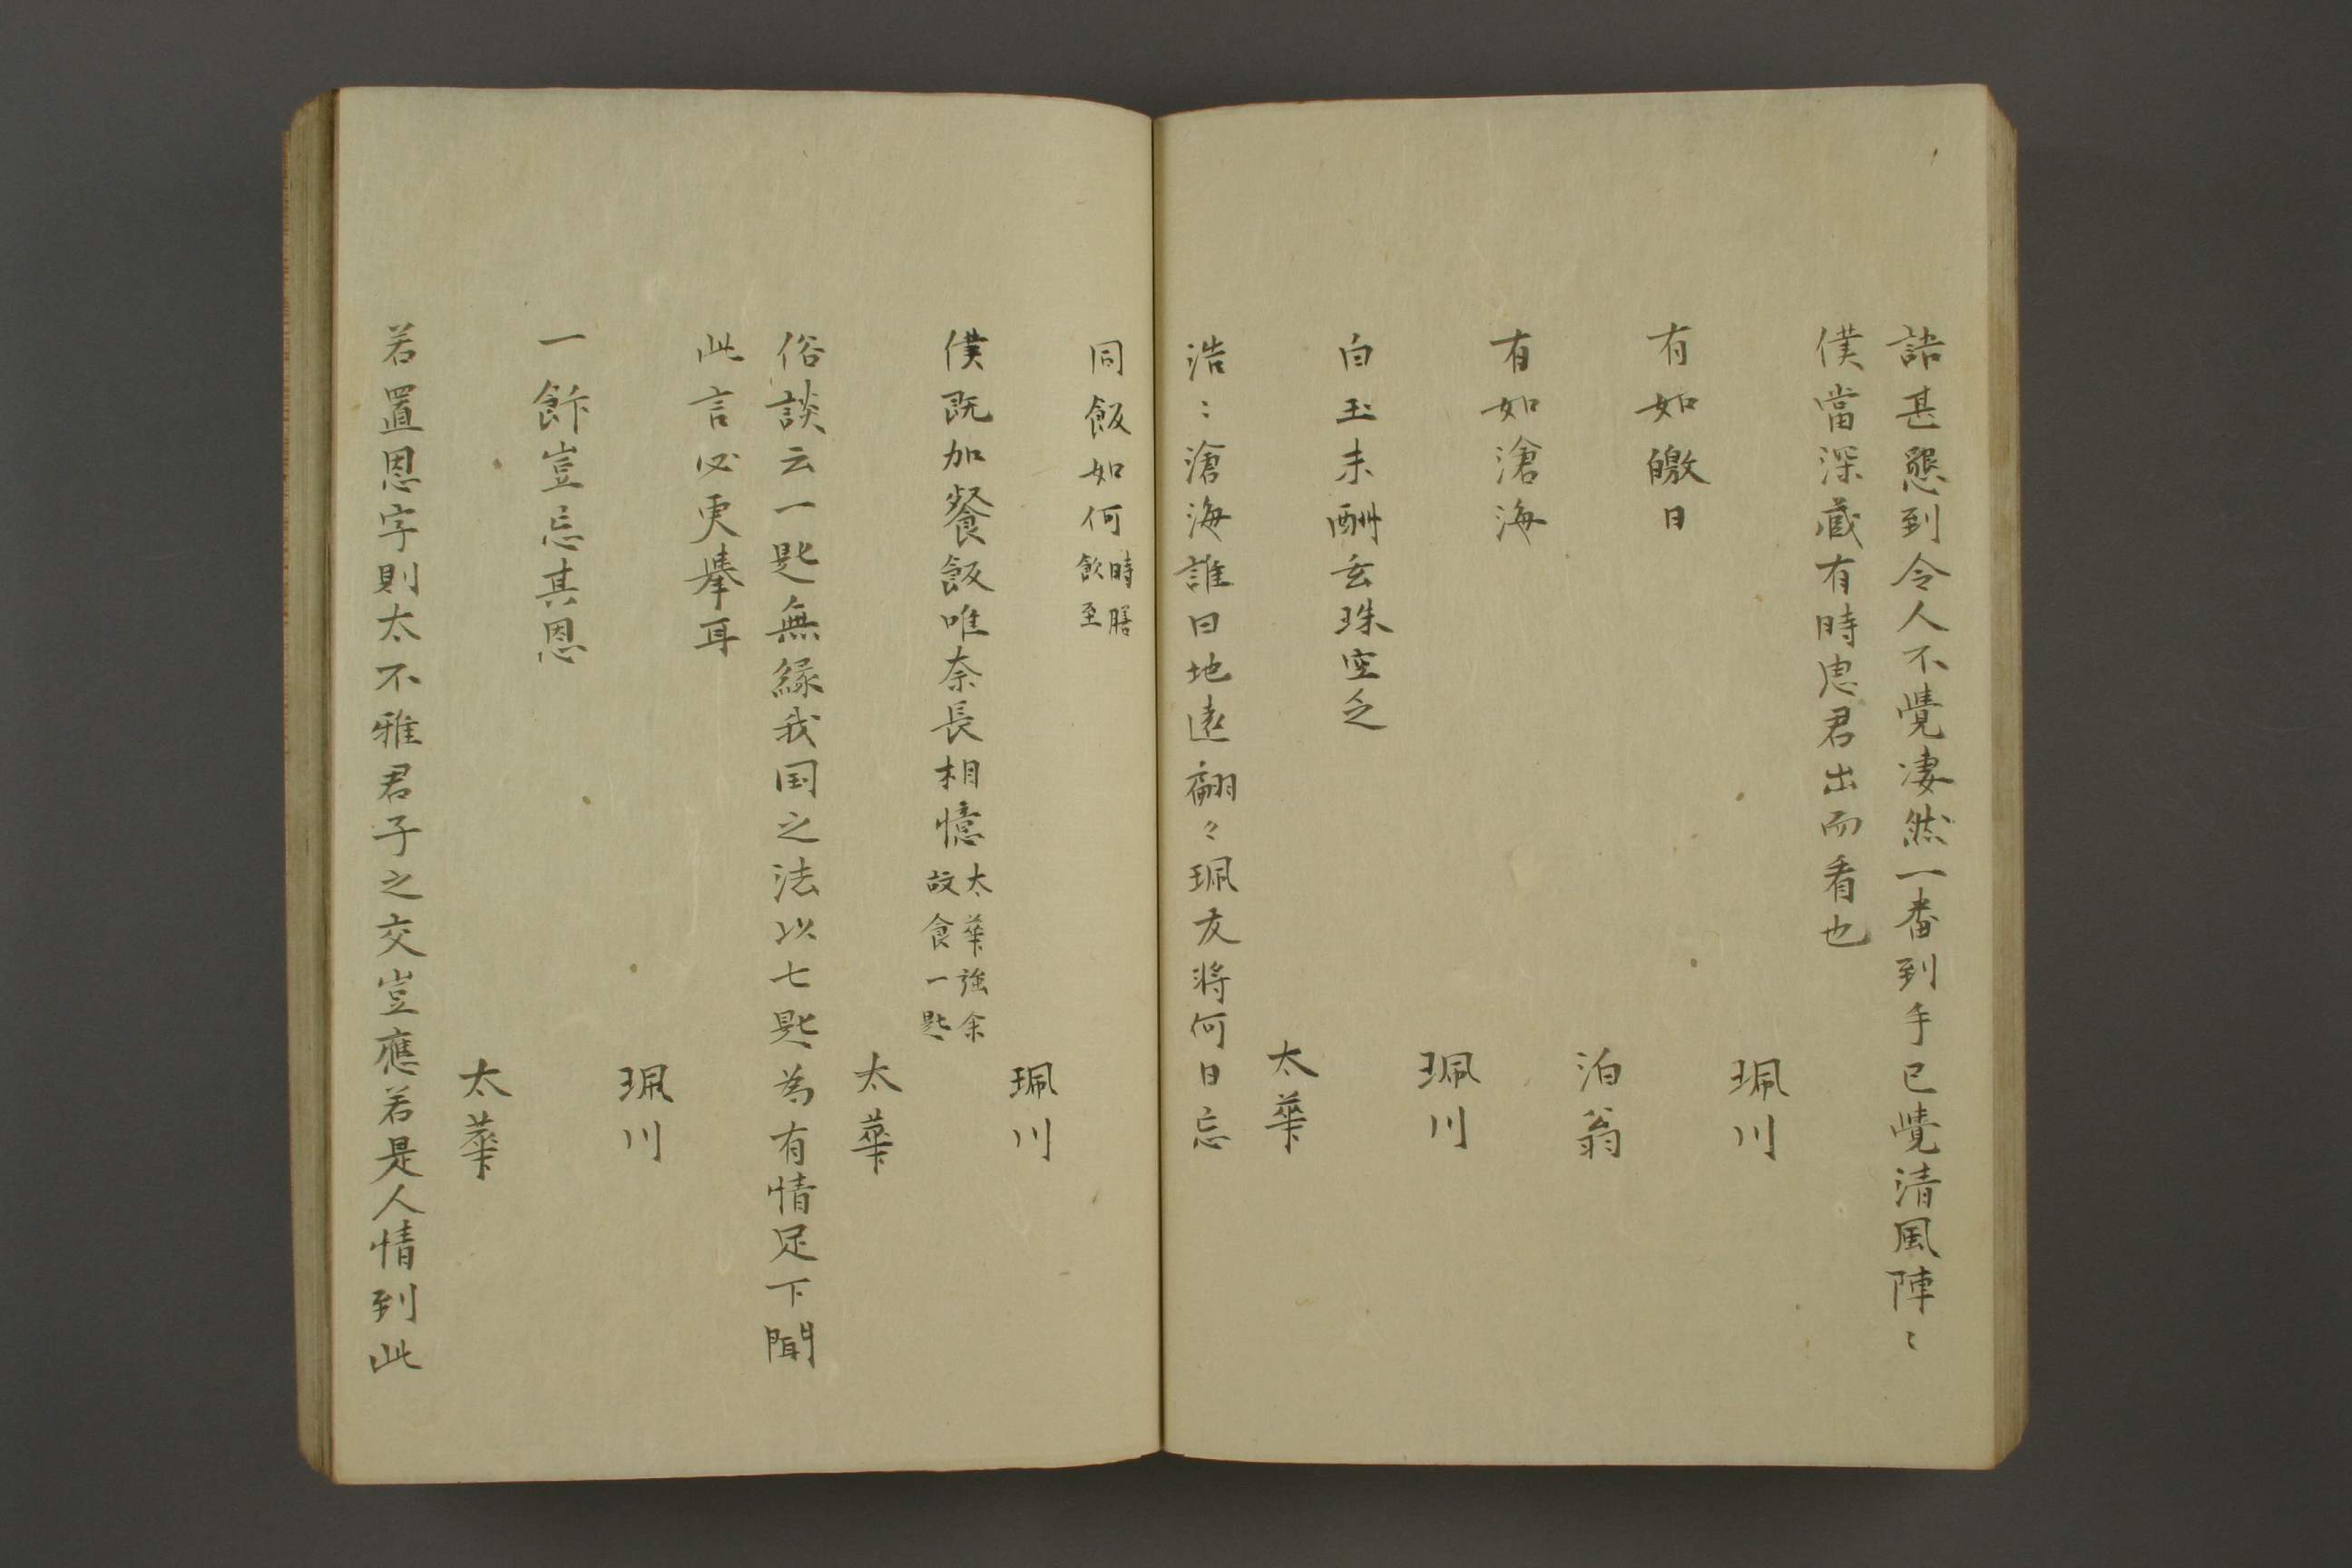 語甚懇到令人不覺凄然一番到手已覺清風陣〻
僕當深藏有時思君出而看也
珮川
有如皦日
泊翁
有如滄海
珮川
白玉未酬玄珠空乏
太華
浩〻滄海誰曰地遠翩々珮友將何日忘
同飯如何時膳
飲至
珮川
僕既加餐飯唯奈長相憶太華強余
故食一匙
太華
俗談云一匙無緣我国之法以七匙為有情足下聞
此言必更擧耳
珮川
一飵豈忘其恩
太華
若置恩字則太不雅君子之交豈應若是人情到此